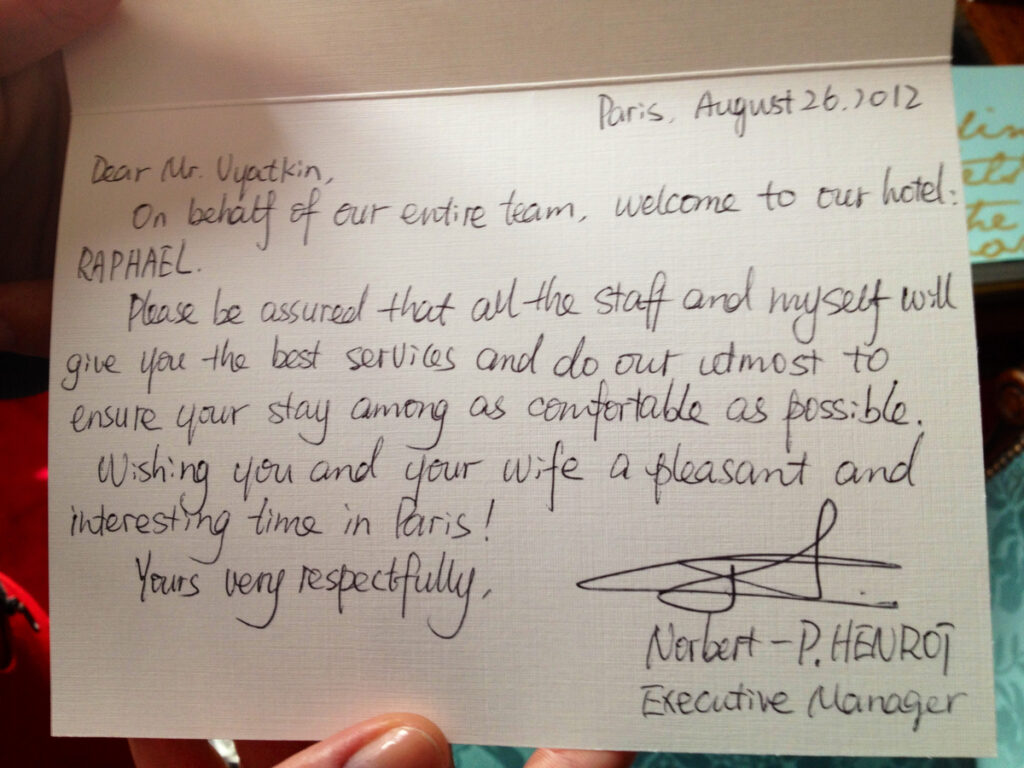 Paris, August 26.2012
Dear Mr. Vyatkin,
On behalf of our entire team, welcome to our hotel:
RAPHAEL.
Please be assured that all the staff and myself will
give you the best services and do our utmost to
ensure your stay among as comfortable as possible.
Wishing you and your wife a pleasant and
interesting time in Paris!
Yours very respectfully,
Norbert-P. HENROT
Executive Manager